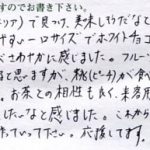 すのでお書き下さい。
エリア)で見つけ、美味しそうだなと
けすい一口サイズでホワイトチョコ
さわやかに感じました。フルー
と思いますが、桃(ピーチ)が食べ
。お茶との相性も良く、来客用
たいなと感じました。これから
作っていって下さい。応援してます。